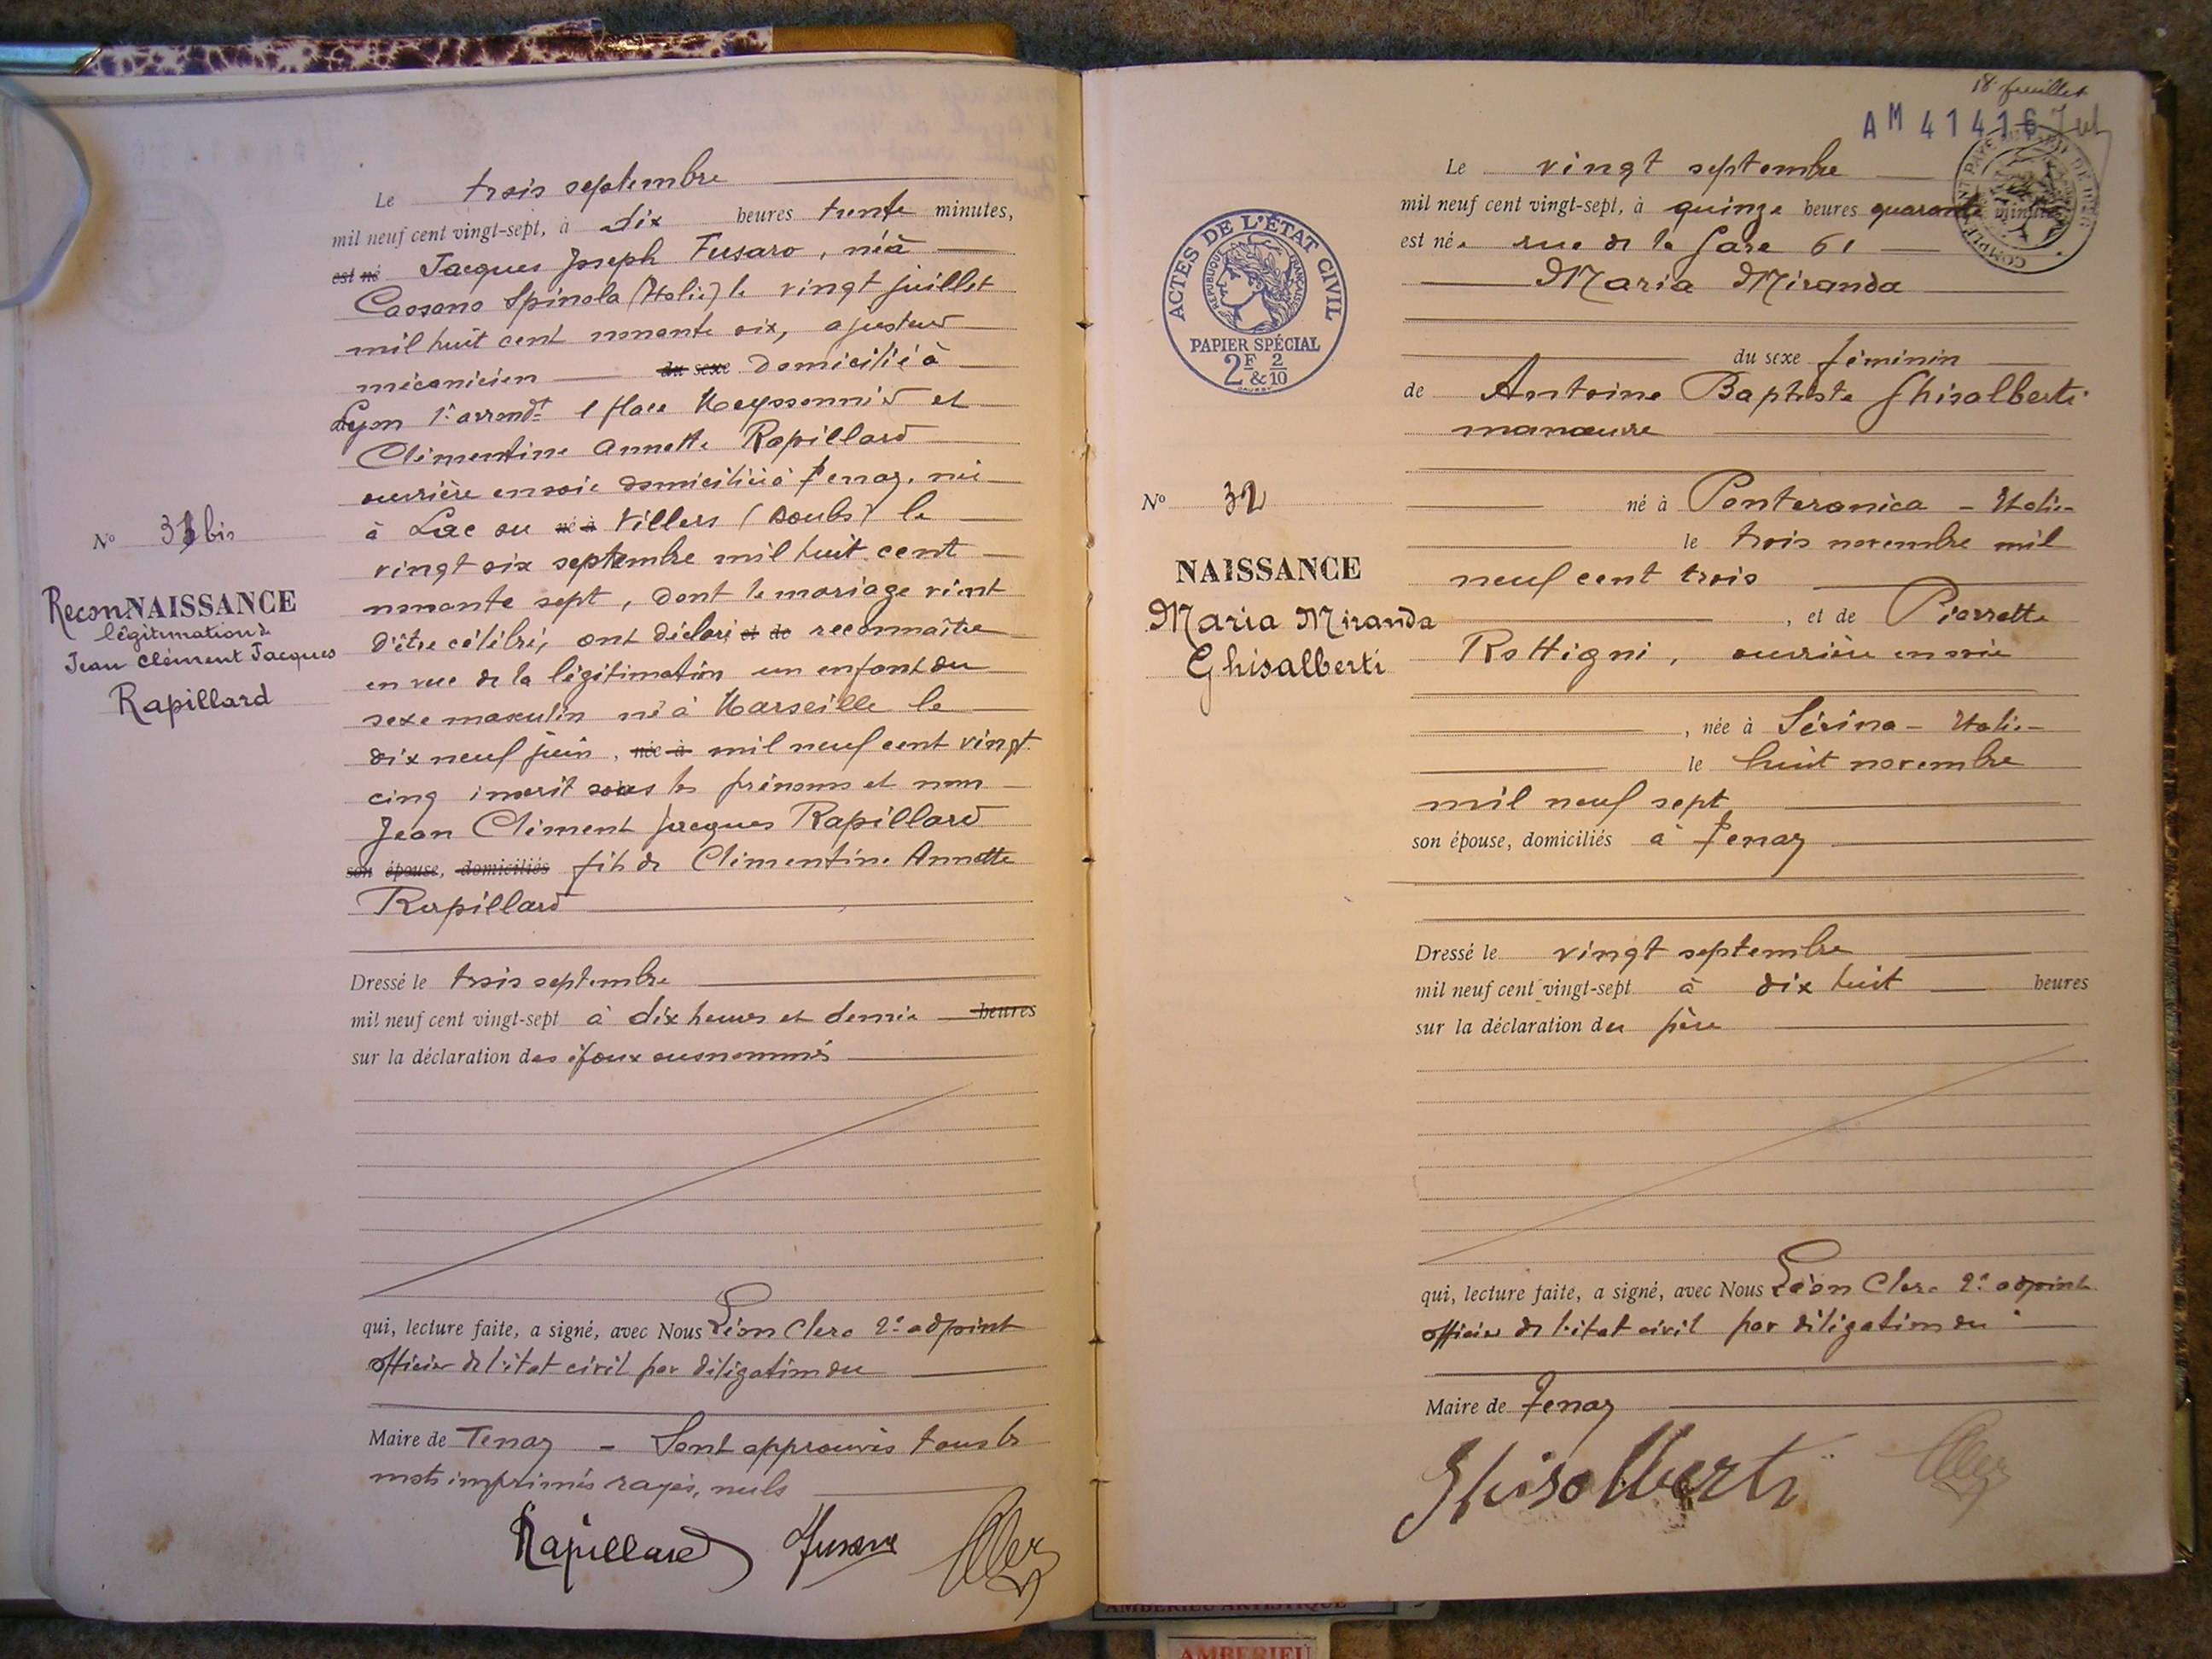 N° 31 bis
ReconNAISSANCE
légitimation de
Jean Clément Jacques
Rapillard
Le trois septembre
mil neuf cent vingt-sept, à dix heures trente minutes,
est né Jacques Joseph Fusaro, né à
Cassano Spinola (Italie) le vingt juillet
mil huit cent nonante six, ajusteur
mécanicien du sexe domicilié à
Lyon 1er arrondt 1 place Meyssonnier et
Clémentine Annette Rapillard
ouvrière en soie domiciliée à Tenay, née
à Lac ou né à Villers (Doubs) le
vingt six septembre mil huit cent
nonante sept, dont le mariage vient
d'être célébré, ont déclaré et de reconnaître
en vue de la légitimation un enfant du
sexe masculin né à Marseille le
dix neuf juin, née à mil neuf cent vingt
cinq inscrit sous les prénoms et nom
Jean Clément Jacques Rapillard
son épouse, domiciliés fils de Clémentine Annette
Rapillard
Dressé le trois septembre
mil neuf cent vingt-sept à dix heures et demie heures
sur la déclaration des époux susnommés
qui, lecture faite, a signé, avec Nous Léon Clerc 2e adjoint
officier de l'état civil par délégation du
Maire de Tenay - Sont approuvés tous les
mots imprimés rayés, nuls
Rapillard Fusaro
18e feuillet
AM 41416
ACTES DE L'ÉTAT CIVIL
RÉPUBLIQUE FRANÇAISE
PAPIER SPÉCIAL
2F & 2/10
N° 32
NAISSANCE
Maria Miranda
Ghisalberti
Le vingt septembre
mil neuf cent vingt-sept, à quinze heures quarante minutes
est née rue de la Gare 61
Maria Miranda
du sexe féminin
de Antoine Baptiste Ghisalberti
manœuvre
né à Ponteranica - Italie
le trois novembre mil
neuf cent trois
, et de Pierrette
Rottigni, ouvrière en soie
, née à Sérina - Italie
le huit novembre
mil neuf sept
son épouse, domiciliés à Tenay
Dressé le vingt septembre
mil neuf cent vingt-sept à dix huit heures
sur la déclaration du père
qui, lecture faite, a signé, avec Nous Léon Clerc 2e adjoint
officier de l'état civil par délégation du
Maire de Tenay
Ghisalberti
AMBERIEU ARTISTIQUE
AMBERIEU